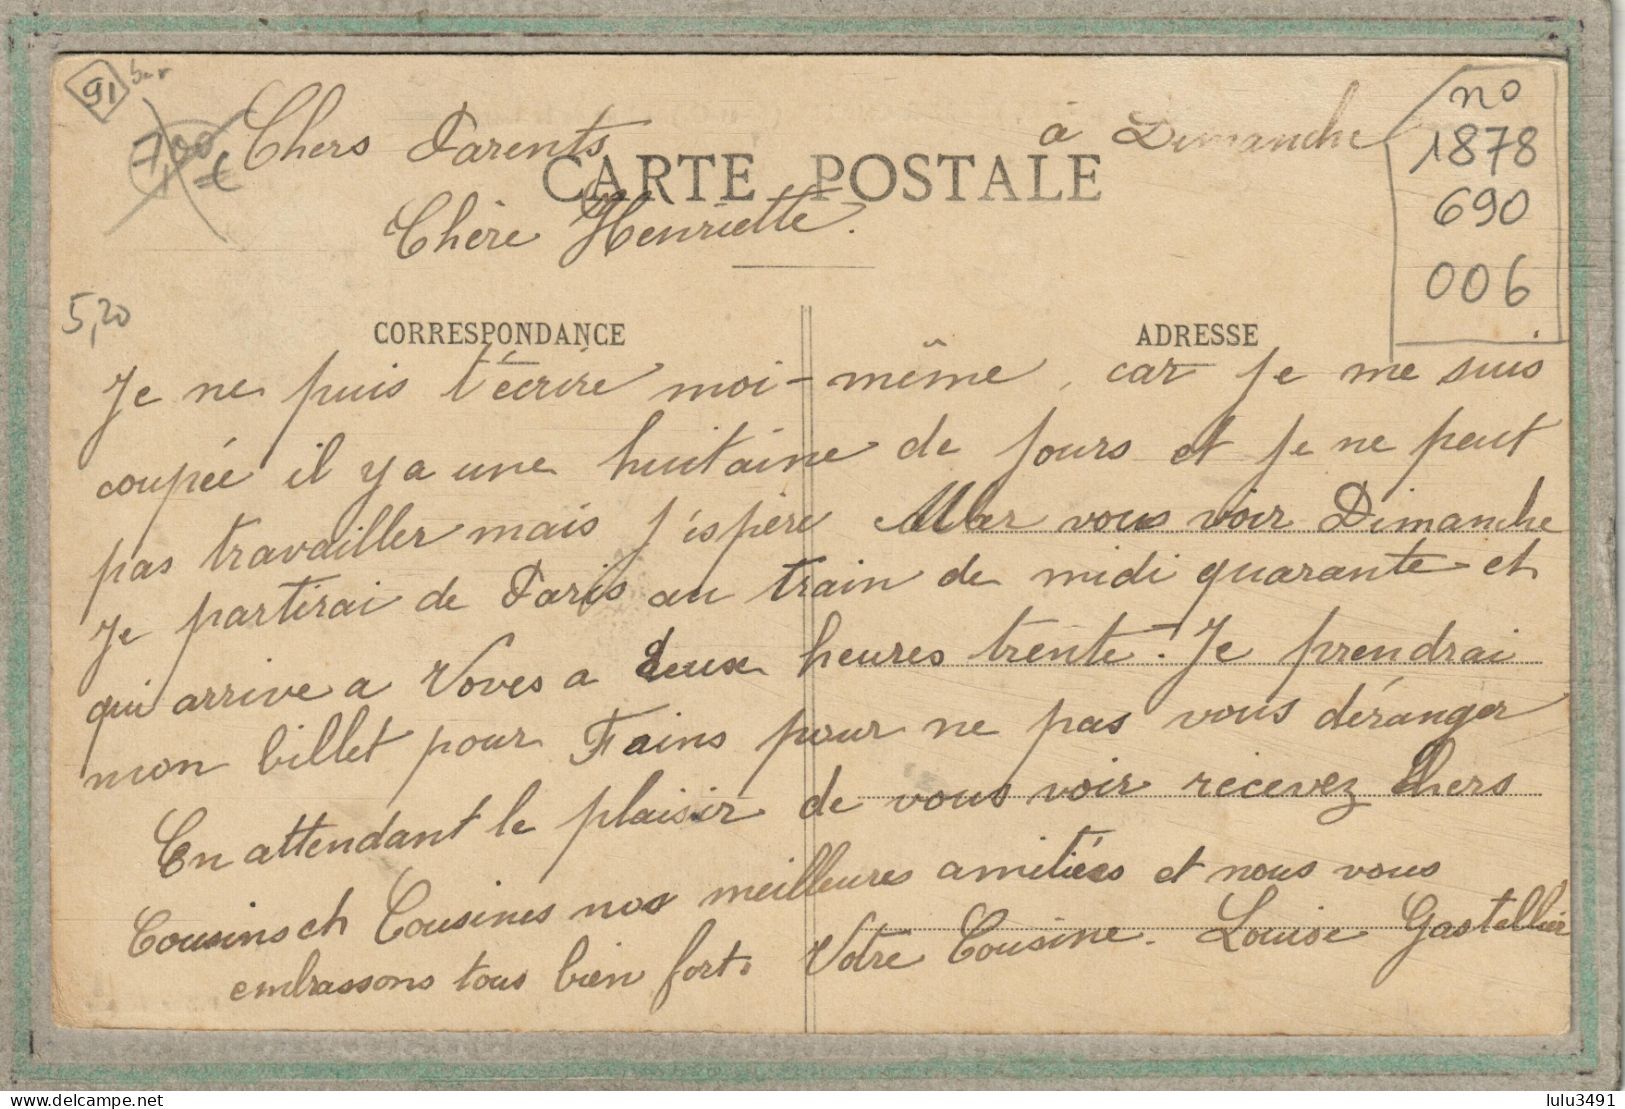 91
7,00 €
Chers Parents
à Dimanche
CARTE POSTALE
Chère Henriette.
no
1878
690
006
5,20
CORRESPONDANCE
ADRESSE
Je ne puis t'écrire moi-même, car je me suis
coupée il y a une huitaine de jours et je ne peut
pas travailler mais j'espère aller vous voir Dimanche
Je partirai de Paris au train de midi quarante et
qui arrive a Voves a deux heures trente. Je prendrai
mon billet pour Fains pour ne pas vous déranger
En attendant le plaisir de vous voir recevez chers
Cousins et Cousines nos meilleures amitiées et nous vous
embrassons tous bien fort. Votre Cousine. Louise Gastellier
lulu3491